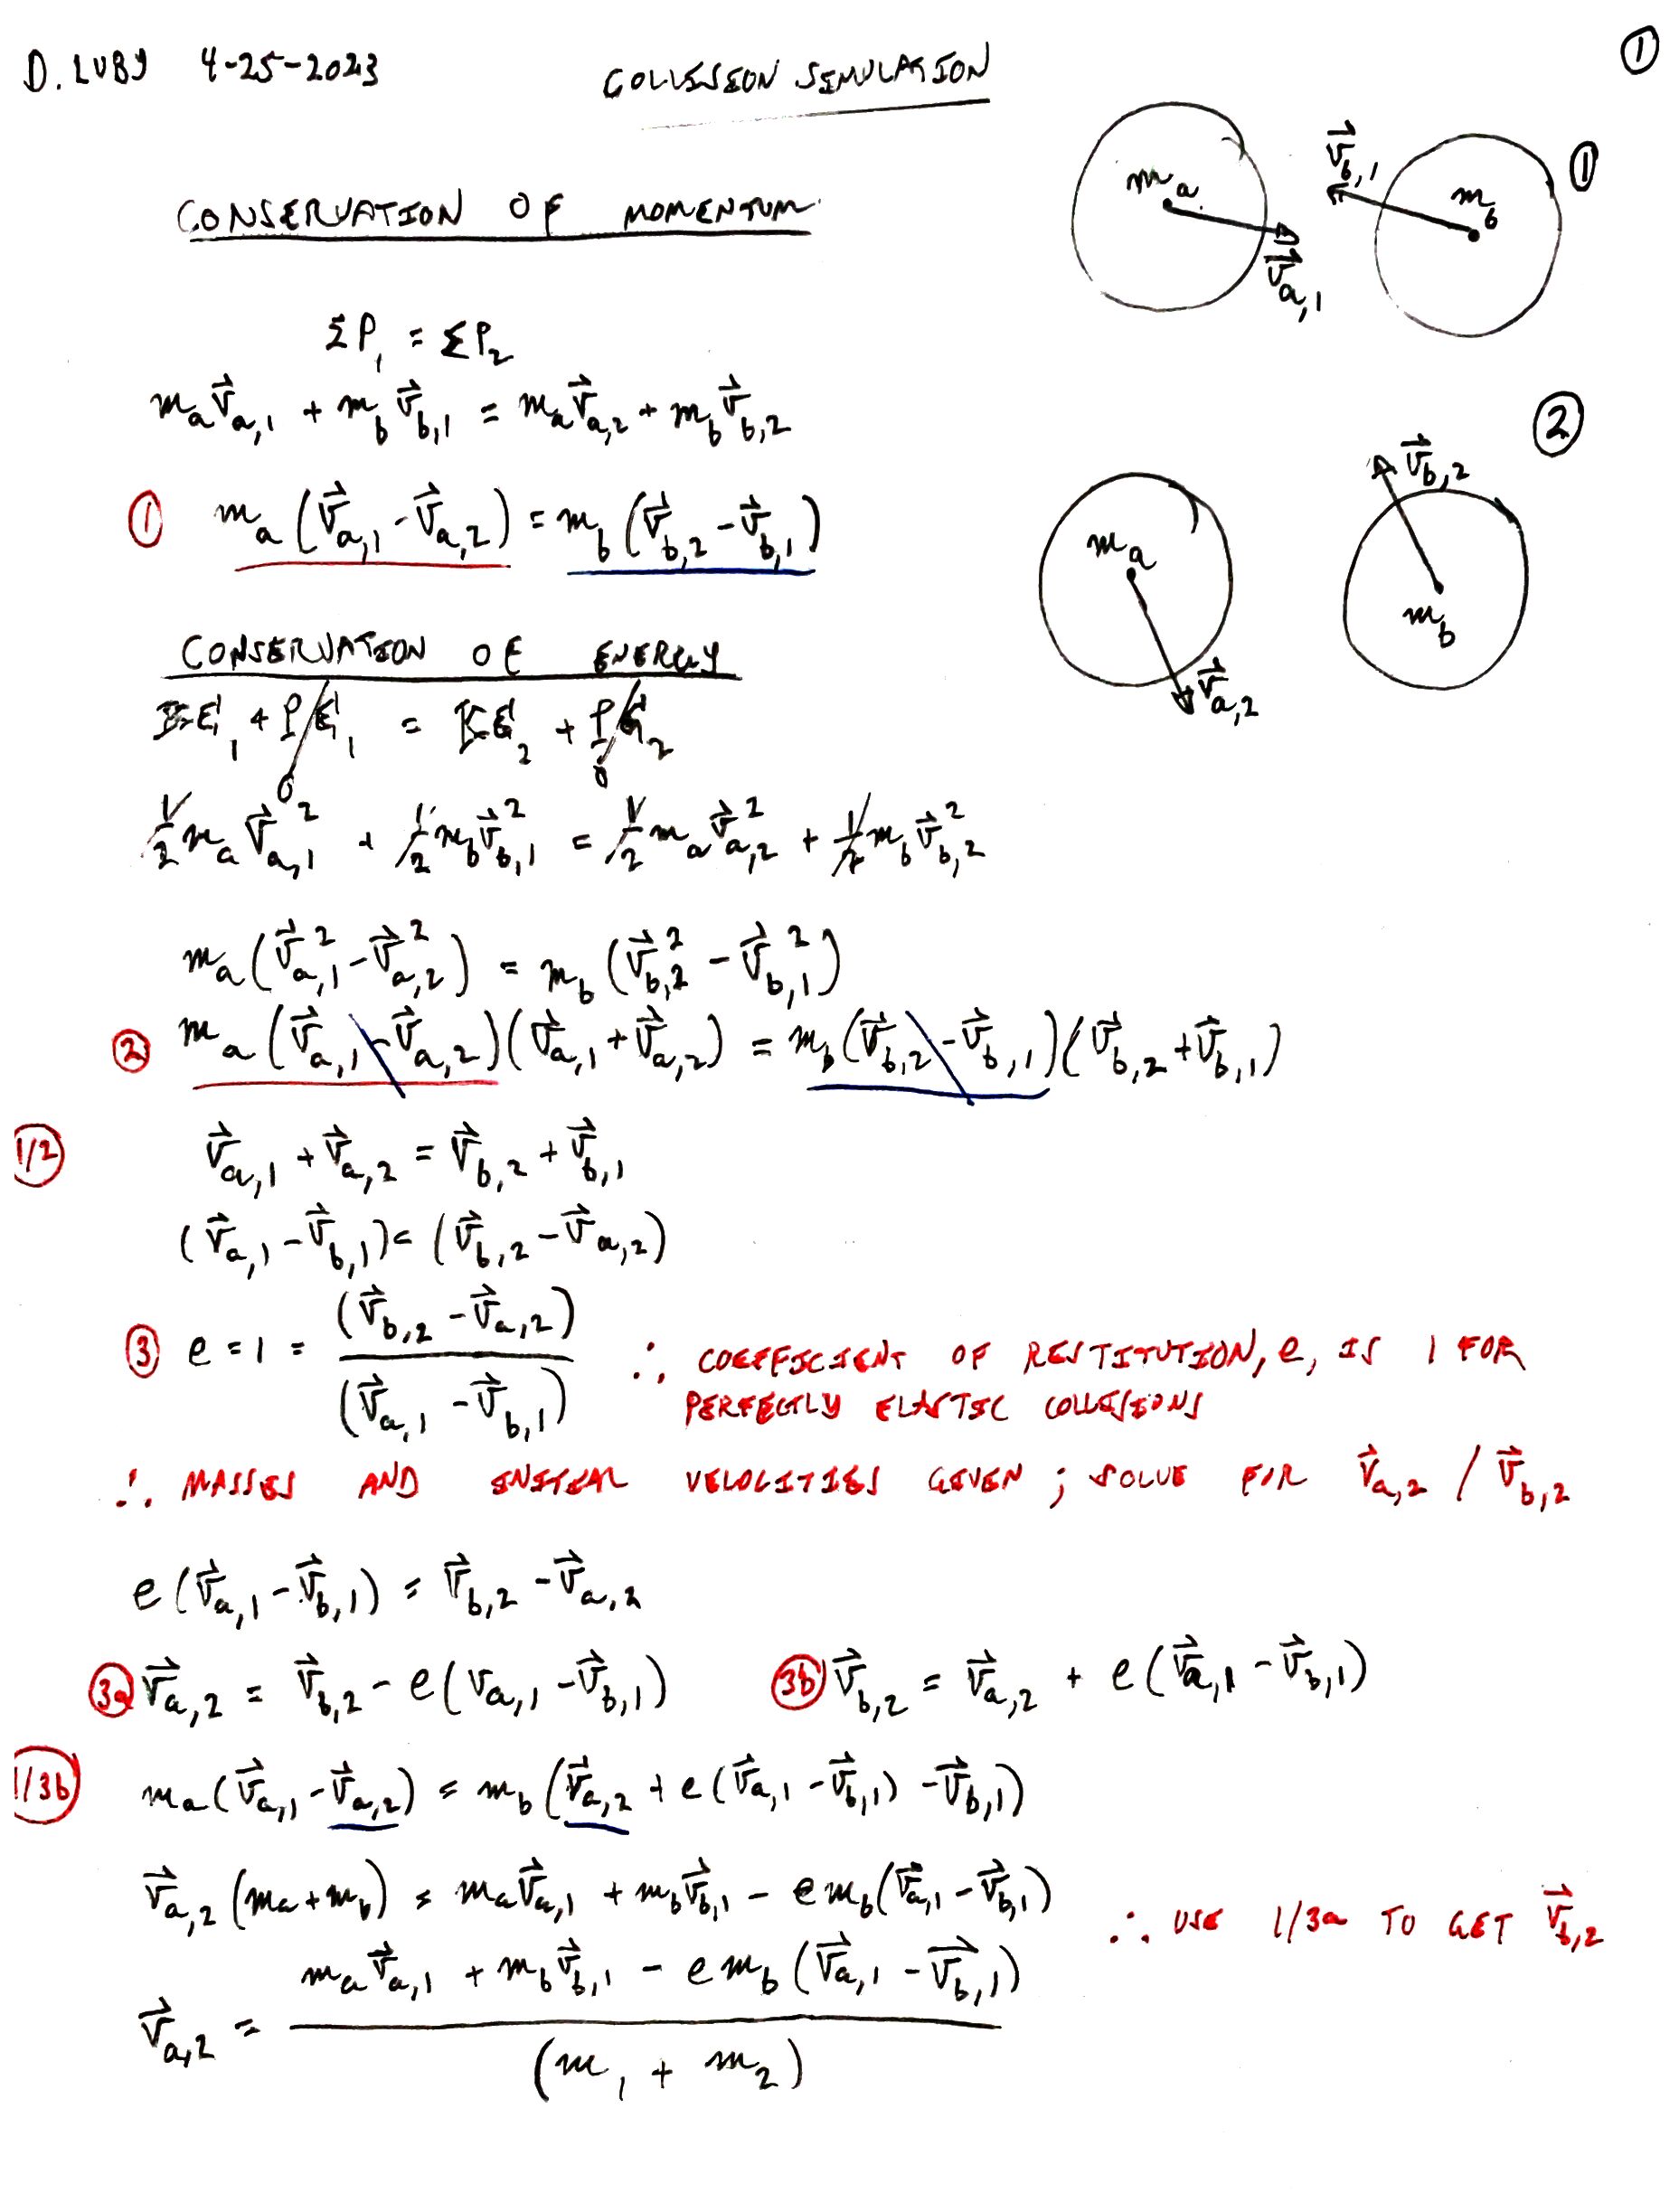 D. LUBY 4-25-2023 COLLISION SIMULATION ①
CONSERVATION OF MOMENTUM
m_a v⃗_{b,1} m_b ①
v⃗_{a,1}
ΣP_1 = ΣP_2
m_a v⃗_{a,1} + m_b v⃗_{b,1} = m_a v⃗_{a,2} + m_b v⃗_{b,2}
②
① m_a (v⃗_{a,1} - v⃗_{a,2}) = m_b (v⃗_{b,2} - v⃗_{b,1})
v⃗_{b,2}
m_a m_b
v⃗_{a,2}
CONSERVATION OF ENERGY
KE_1 + PE_1 = KE_2 + PE_2
0 0
1/2 m_a v⃗_{a,1}^2 + 1/2 m_b v⃗_{b,1}^2 = 1/2 m_a v⃗_{a,2}^2 + 1/2 m_b v⃗_{b,2}^2
m_a (v⃗_{a,1}^2 - v⃗_{a,2}^2) = m_b (v⃗_{b,2}^2 - v⃗_{b,1}^2)
② m_a (v⃗_{a,1} - v⃗_{a,2})(v⃗_{a,1} + v⃗_{a,2}) = m_b (v⃗_{b,2} - v⃗_{b,1})(v⃗_{b,2} + v⃗_{b,1})
1/2 v⃗_{a,1} + v⃗_{a,2} = v⃗_{b,2} + v⃗_{b,1}
(v⃗_{a,1} - v⃗_{b,1}) = (v⃗_{b,2} - v⃗_{a,2})
③ e = 1 = (v⃗_{b,2} - v⃗_{a,2}) / (v⃗_{a,1} - v⃗_{b,1}) ∴ COEFFICIENT OF RESTITUTION, e, IS 1 FOR
PERFECTLY ELASTIC COLLISIONS
∴ MASSES AND INITIAL VELOCITIES GIVEN ; SOLVE FOR v⃗_{a,2} / v⃗_{b,2}
e (v⃗_{a,1} - v⃗_{b,1}) = v⃗_{b,2} - v⃗_{a,2}
3a v⃗_{a,2} = v⃗_{b,2} - e (v_{a,1} - v⃗_{b,1}) 3b v⃗_{b,2} = v⃗_{a,2} + e (v⃗_{a,1} - v⃗_{b,1})
1/3b m_a (v⃗_{a,1} - v⃗_{a,2}) = m_b (v⃗_{a,2} + e (v⃗_{a,1} - v⃗_{b,1}) - v⃗_{b,1})
v⃗_{a,2} (m_a + m_b) = m_a v⃗_{a,1} + m_b v⃗_{b,1} - e m_b (v⃗_{a,1} - v⃗_{b,1})
∴ USE 1/3a TO GET v⃗_{b,2}
v⃗_{a,2} = m_a v⃗_{a,1} + m_b v⃗_{b,1} - e m_b (v⃗_{a,1} - v⃗_{b,1}) / (m_1 + m_2)